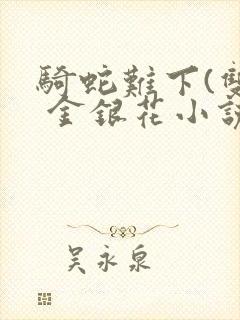 騎蛇難下(雙
金銀花小說
吳永泉